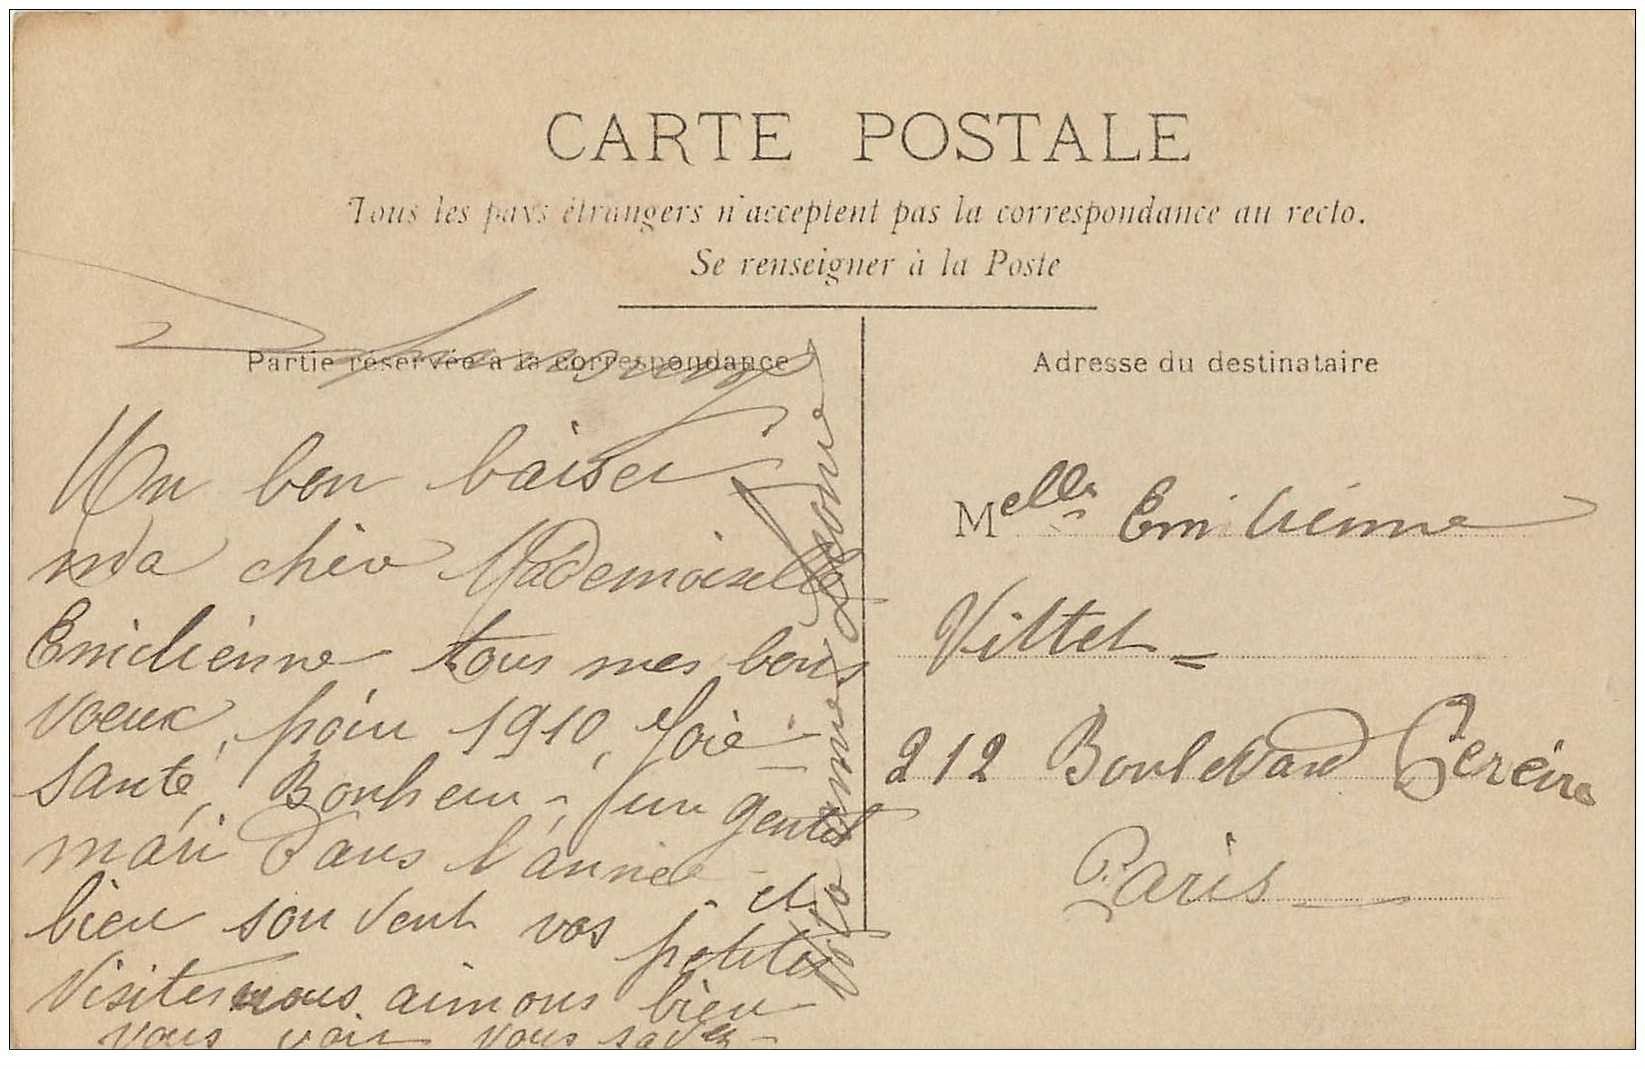 CARTE POSTALE
Tous les pays étrangers n'acceptent pas la correspondance au recto.
Se renseigner à la Poste
Partie réservée à la correspondance
Un bon baiser
ma chère Mademoiselle
Emilienne tous mes bons
voeux, pour 1910, Joie
santé, Bonheur, un gentil
mari dans l'année et
bien souvent vos petites
visites nous aimons bien
vous voir vous savez
Votre
Adresse du destinataire
Melle Emilienne
Vittel
212 Boulevard Pereire
Paris